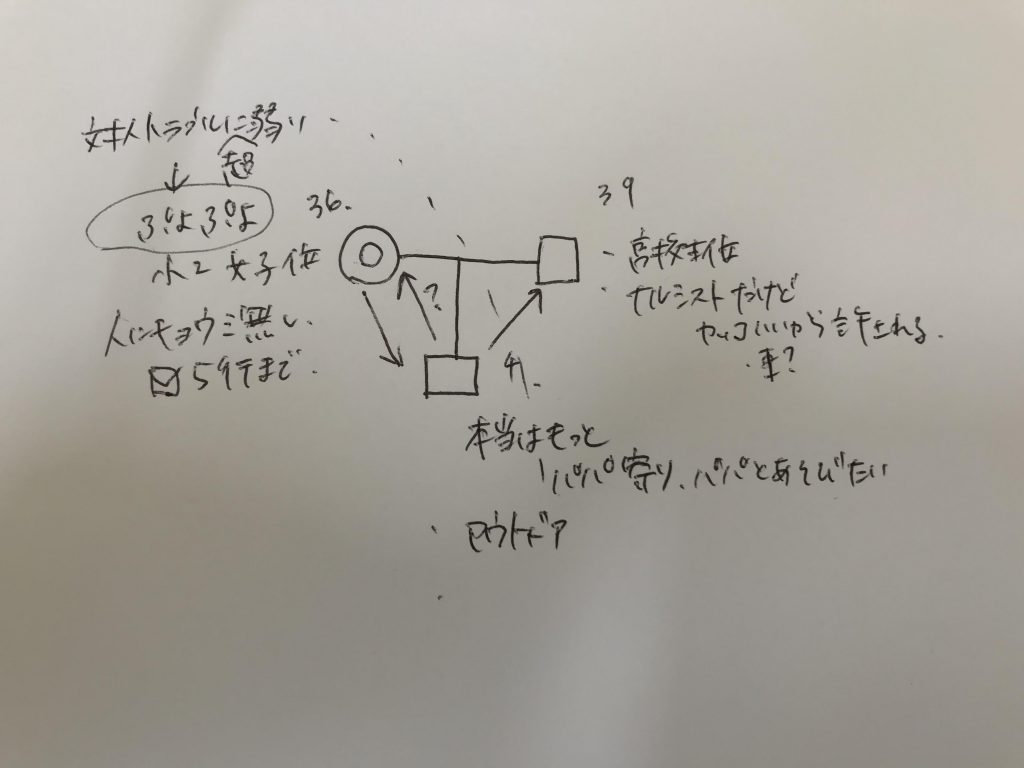 対人トラブルに弱い
超
36.
39
小2 女子位
高校生位
人にキョウミ無し.
ナルシストだけど
カッコいいから許される.
5行まで.
車?
?
本当はもっと
パパ寄り、パパとあそびたい
アウトドア